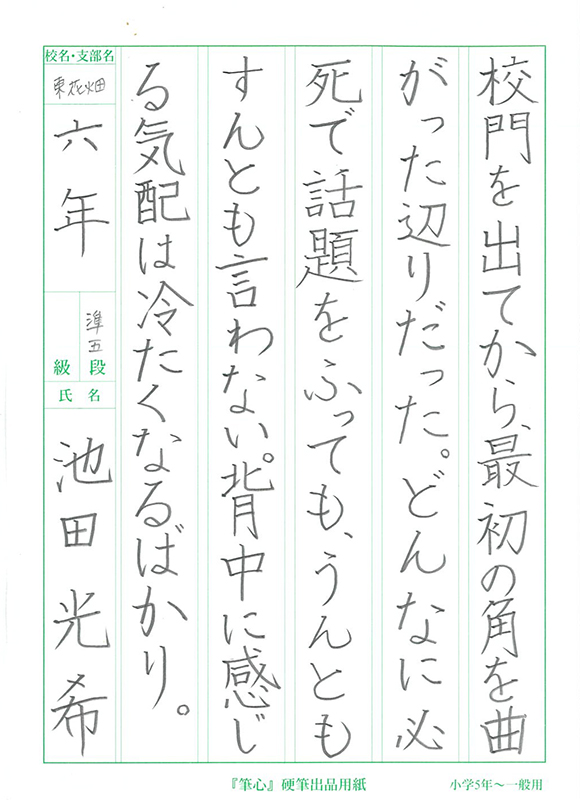 校門を出てから、最初の角を曲
がった辺りだった。どんなに必
死で話題をふっても、うんとも
すんとも言わない。背中に感じ
る気配は冷たくなるばかり。
校名・支部名
東花畑
六年
準五
段
級
氏名
池田光希
『筆心』硬筆出品用紙
小学5年～一般用